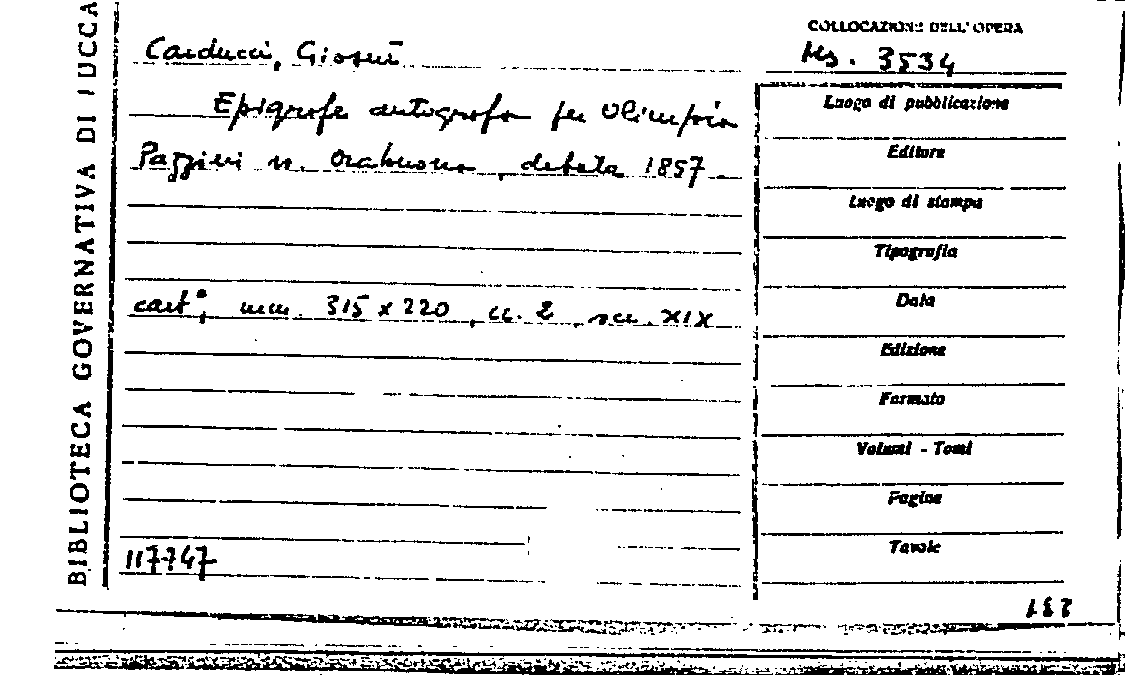 BIBLIOTECA GOVERNATIVA DI LUCCA
COLLOCAZIONE DELL'OPERA
Ms. 3534
Carducci, Giosuè
Epigrafe autografa per Olimpia
Pazzini n. Orabuona, datata 1857
cart°, mm. 315 x 220, cc. 2, sec. XIX
117747
Luogo di pubblicazione
Editore
Luogo di stampa
Tipografia
Data
Edizione
Formato
Volumi - Tomi
Pagine
Tavole